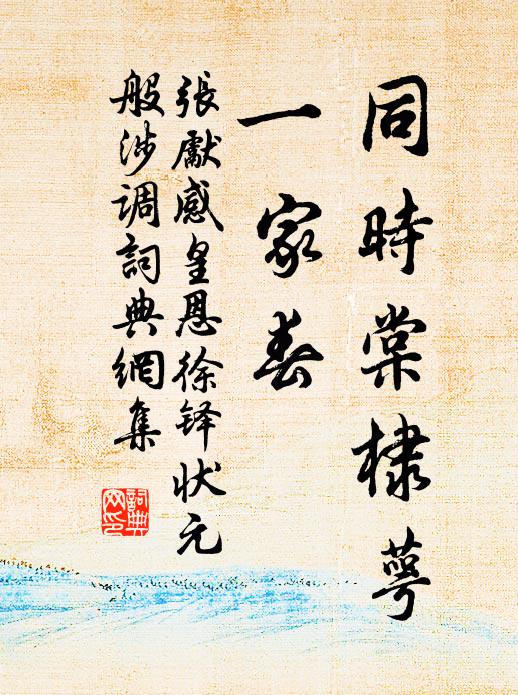 同時棠棣萼
一家春
張獻感皇恩徐铎状元
般涉调詞典網集
詞典網印